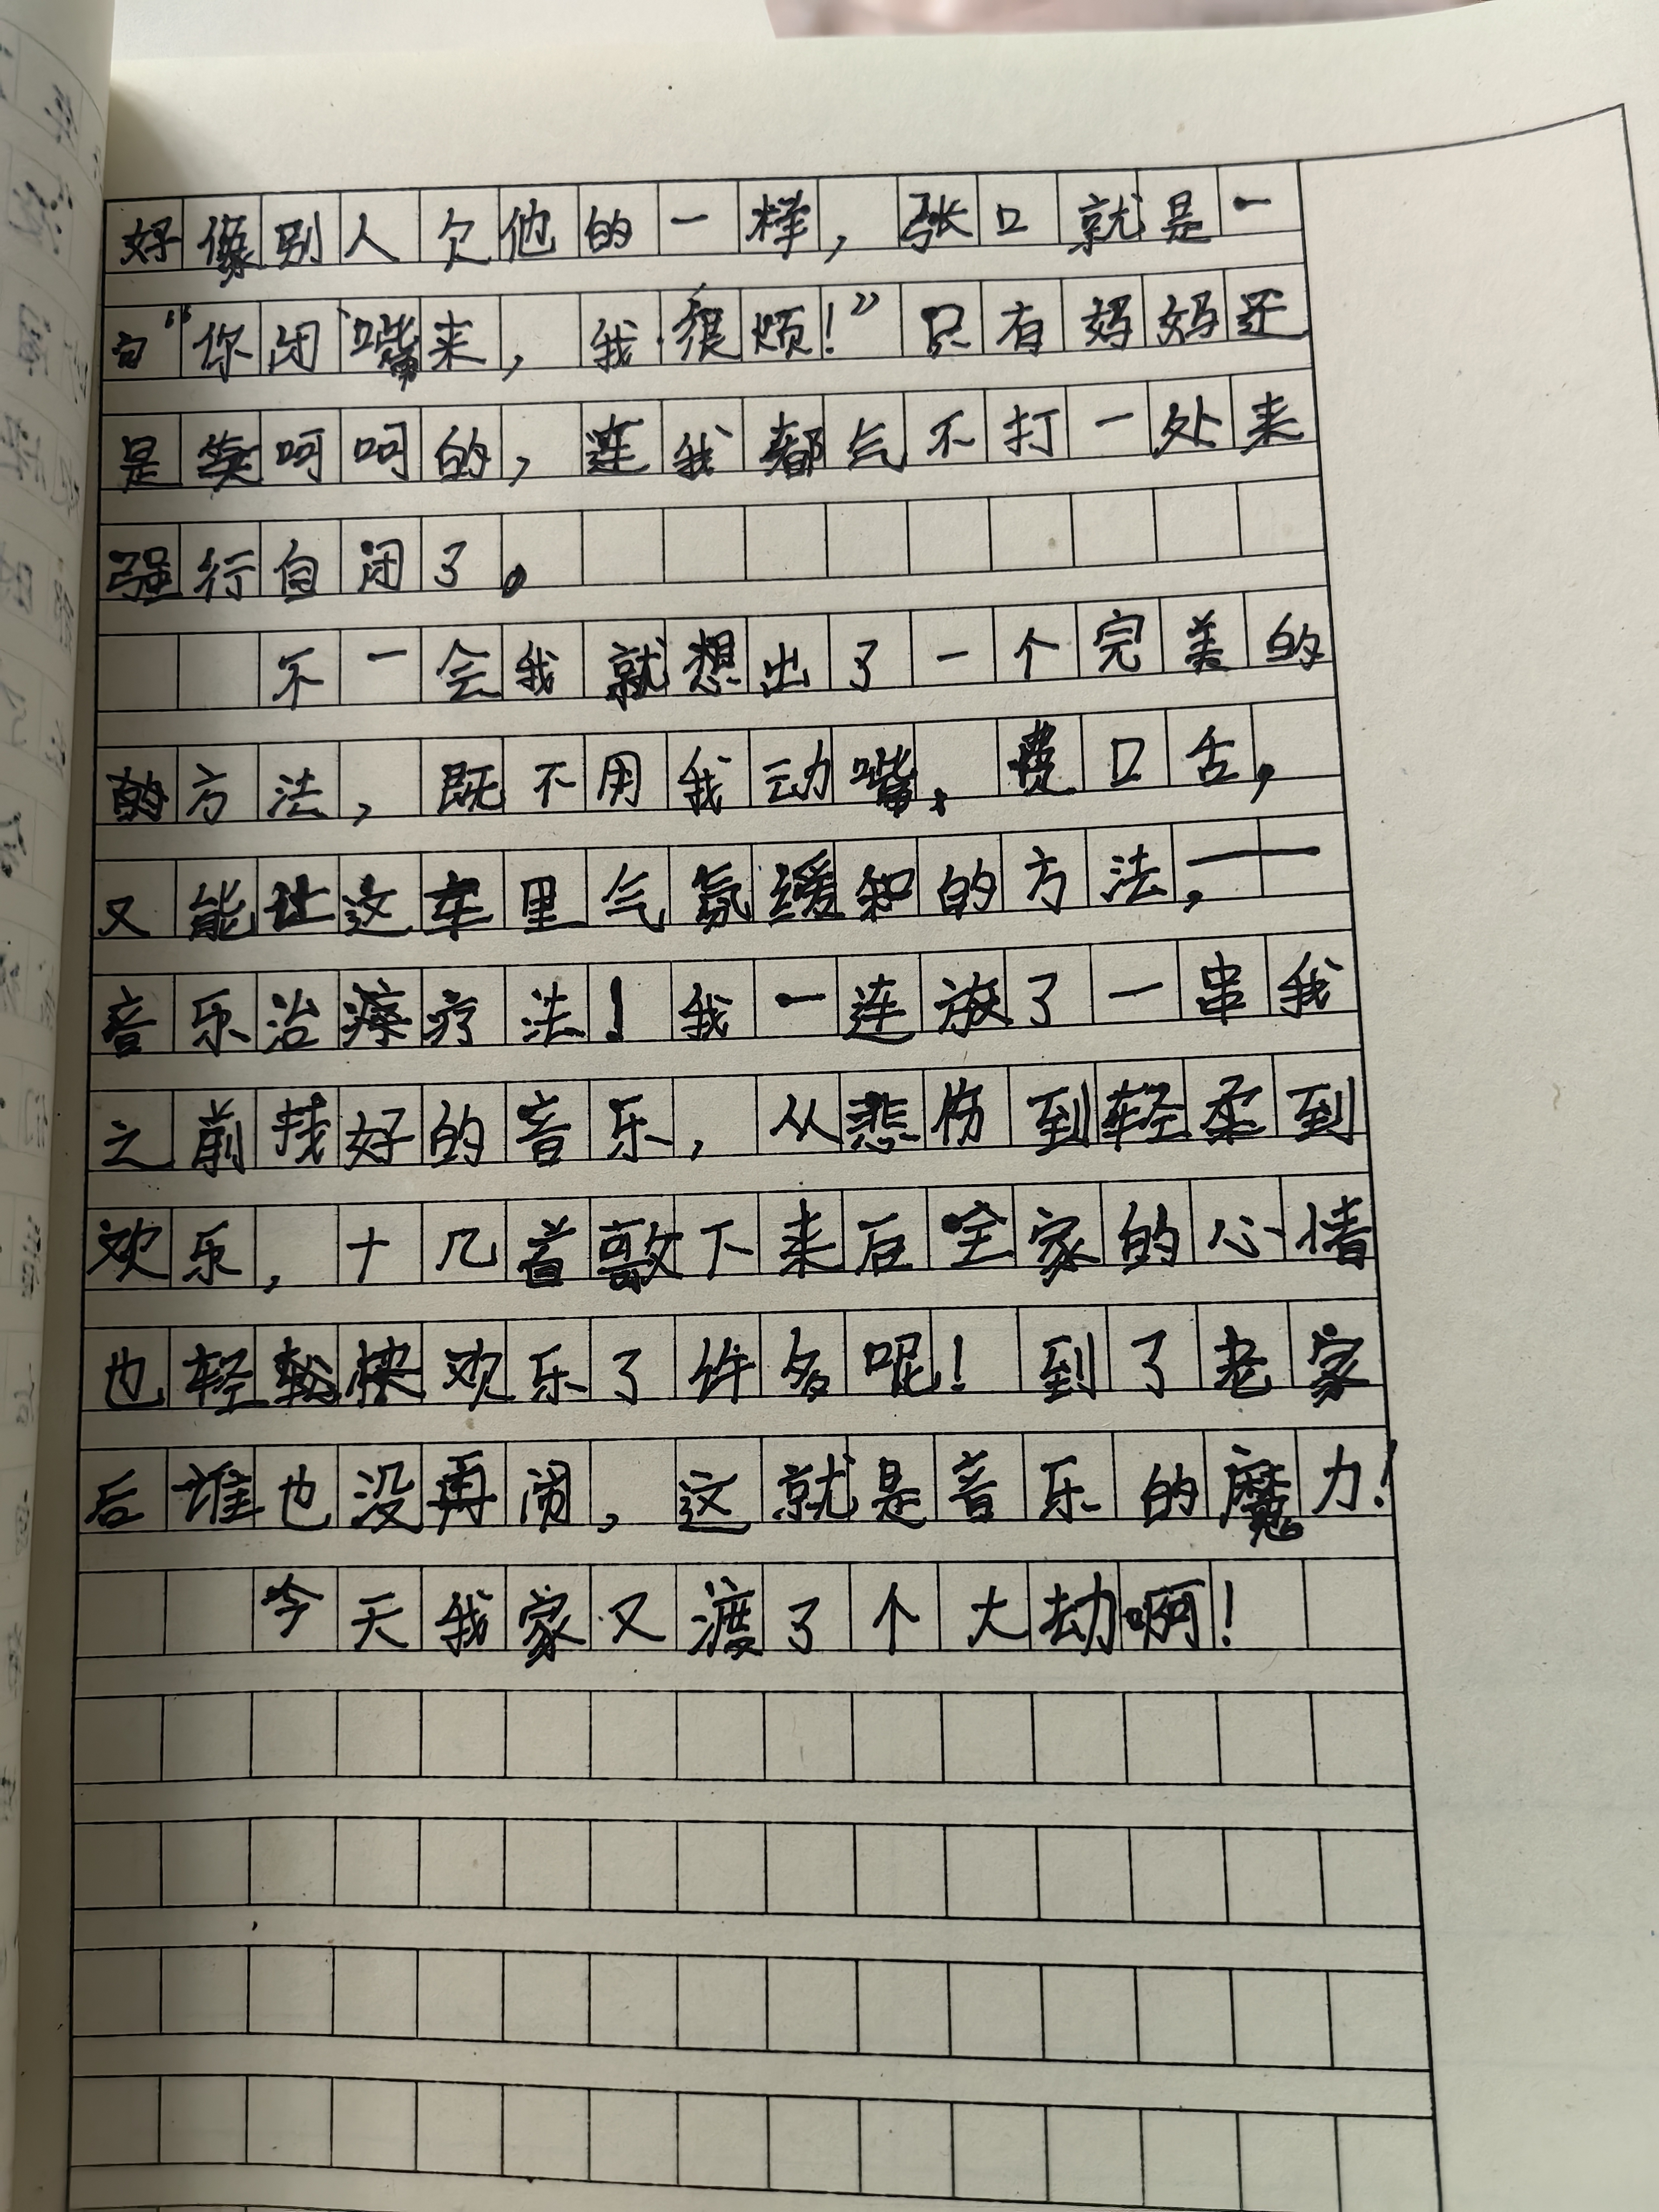 好像别人欠他的一样，张口就是一
句“你闭嘴来，我很烦！”只有妈妈还
是笑呵呵的，连我都气不打一处来
强行自闭了。
不一会我就想出了一个完美的
的方法，既不用我动嘴、费口舌，
又能让这车里气氛缓和的方法，——
音乐治療疗法！我一连放了一串我
之前找好的音乐，从悲伤到轻柔到
欢乐，十几首歌下来后全家的心情
也轻松快欢乐了许多呢！到了老家
后谁也没再闹，这就是音乐的魔力！
今天我家又渡了个大劫啊！